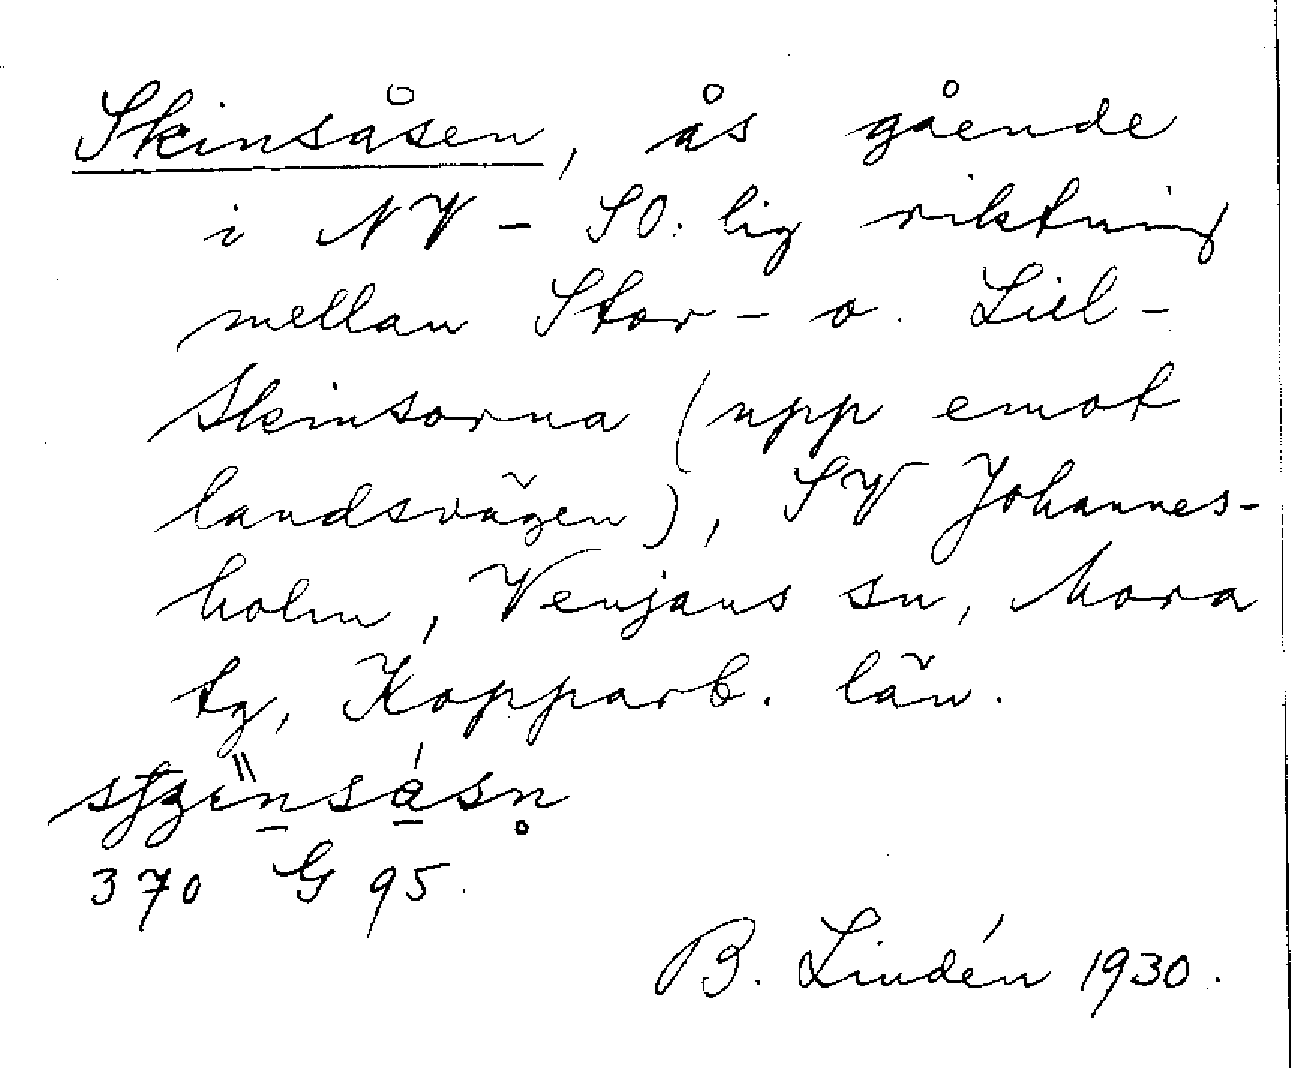 Skinsåsen, ås gående
i NV - SO:lig riktning
mellan Stor- o. Lill-
Skinsorna (upp emot
landsvägen), SV Johannes-
holm, Venjans sn, Mora
tg, Kopparb. län.
370 G 95.
B. Lindén 1930.